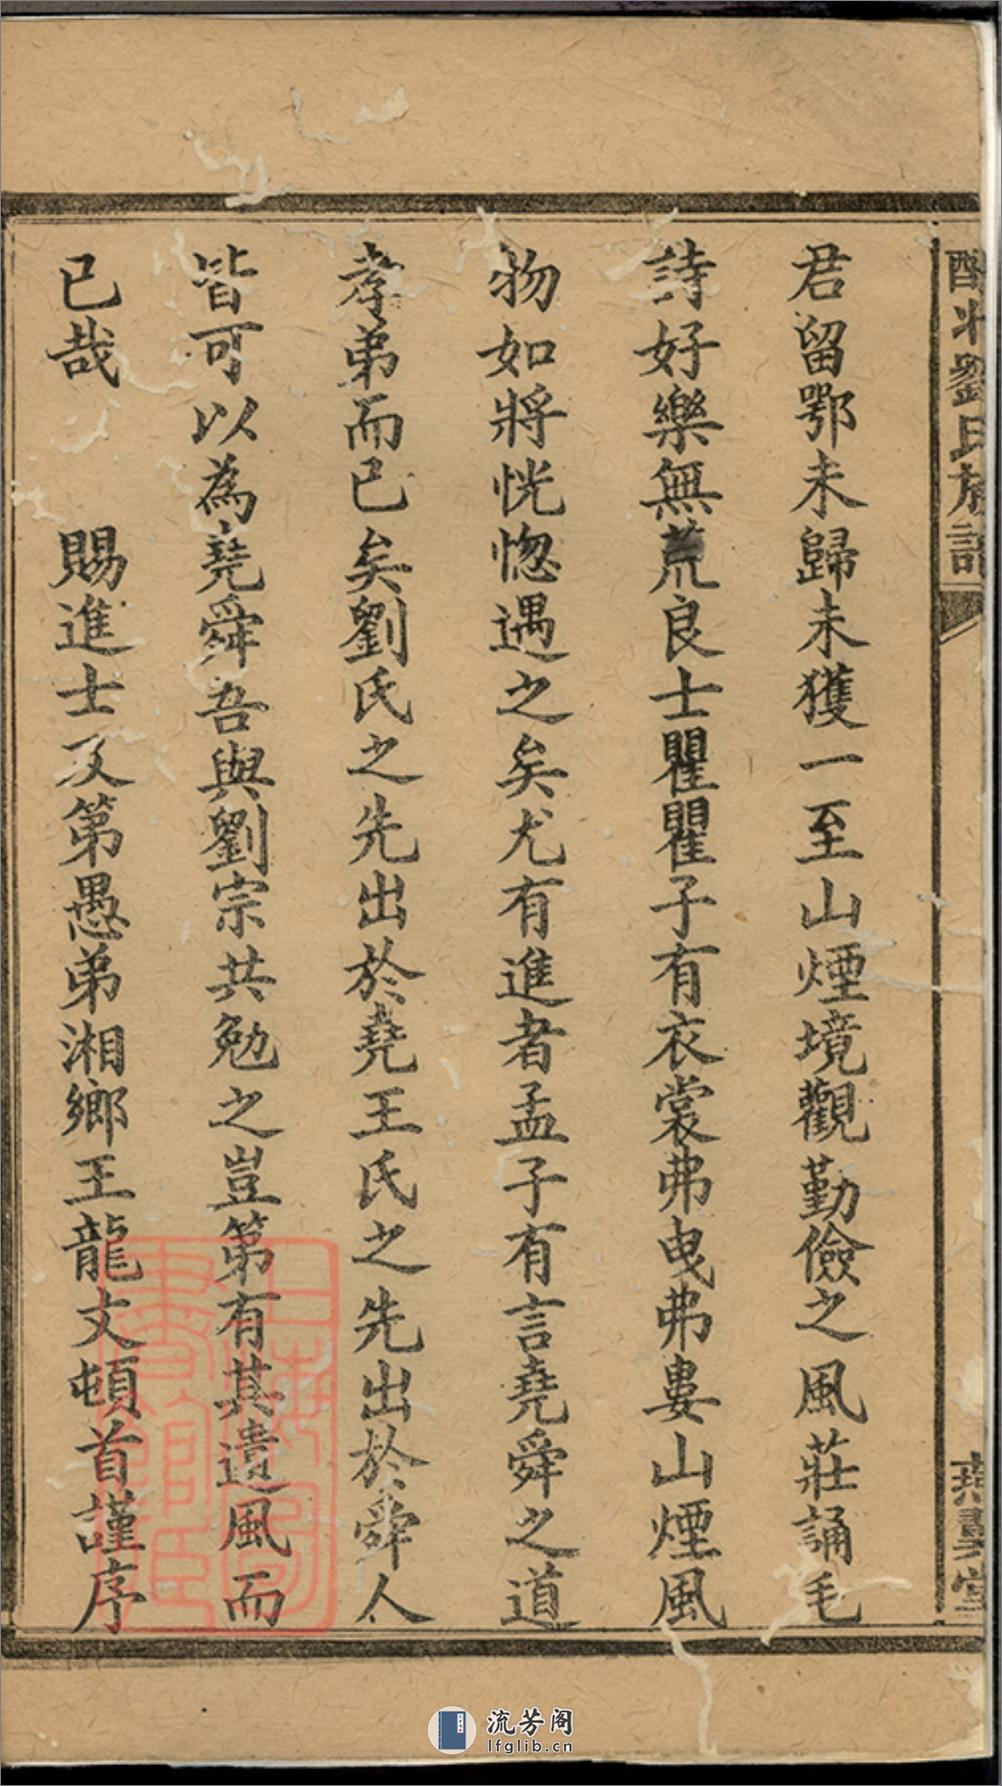 君留鄂未歸未獲一至山煙境觀勤儉之風莊誦毛
詩好樂無荒良士瞿瞿子有衣裳弗曳弗婁山煙風
物如將恍惚遇之矣尤有進者孟子有言堯舜之道
孝弟而已矣劉氏之先出於堯王氏之先出於舜人
皆可以為堯舜吾與劉宗共勉之豈第有其遺風而
已哉　賜進士及第愚弟湘鄉王龍文頓首謹序
劉氏族譜
上海圖書館藏
流芳阁
lfglib.cn